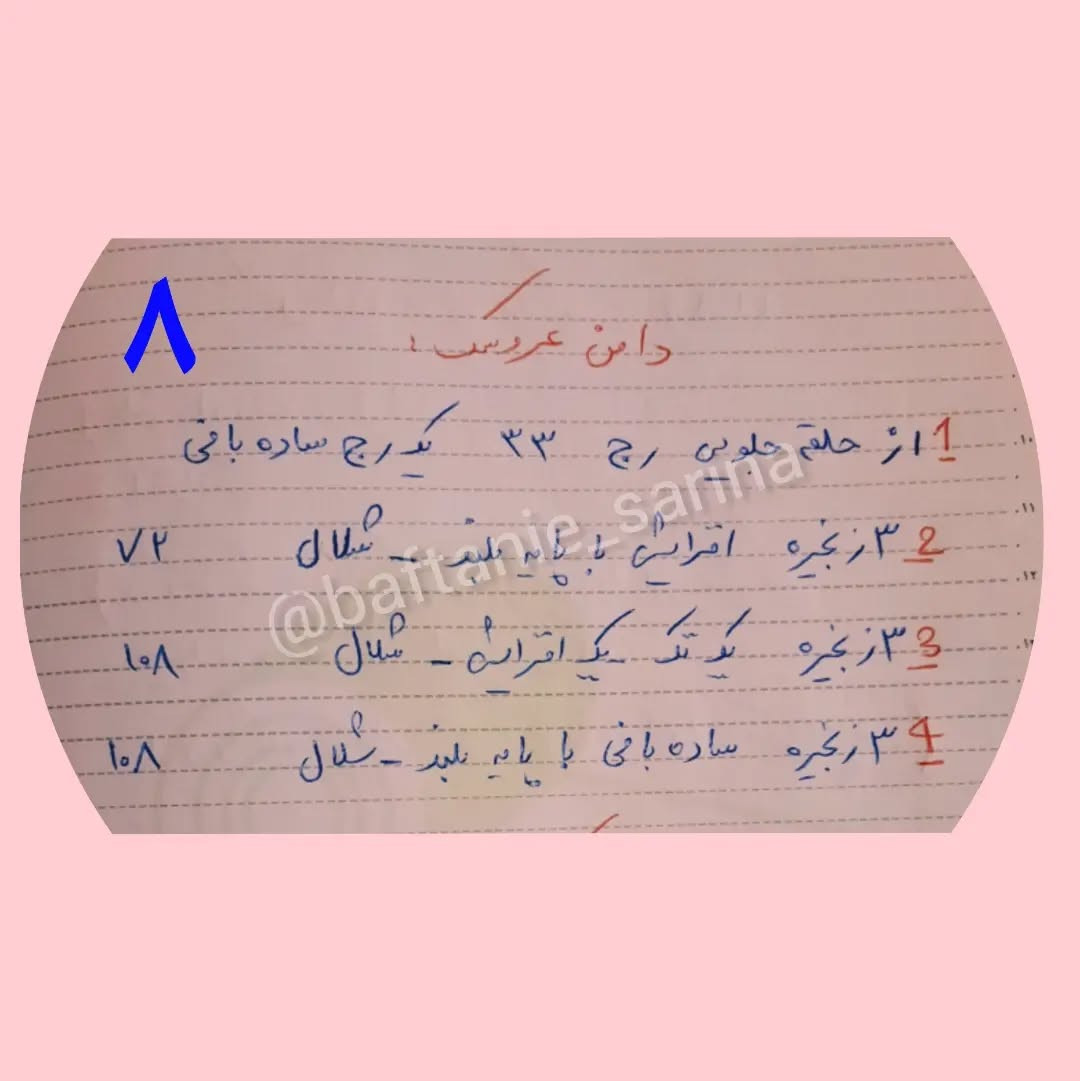 ۸
دامن عروسک:
1 از حلقه جلویی رج ۳۳ یک رج ساده بافی
2 ۳ زنجیره افزایش با پایه بلند - شلال ۷۲
3 ۳ زنجیره یک تک یک افزایش - شلال ۱۰۸
4 ۳ زنجیره ساده بافی با پایه بلند - شلال ۱۰۸
@baftanie_sarina